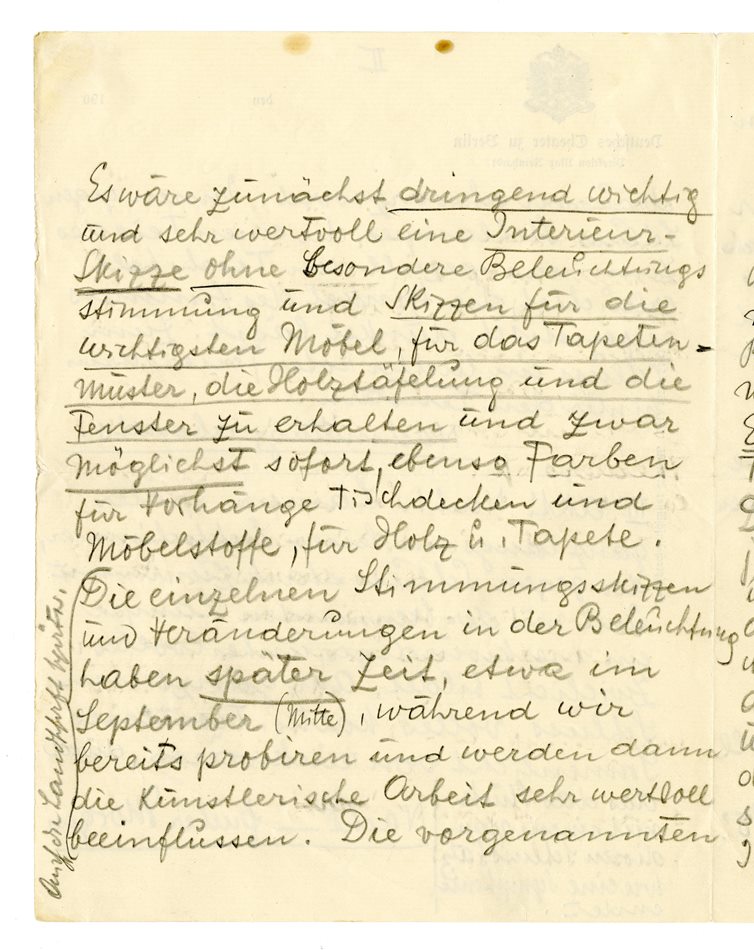 Es wäre zunächst dringend wichtig
und sehr wertvoll eine Interieur-
Skizze ohne besondere Beleuchtungs
stimmung und Skizzen für die
wichtigsten Möbel, für das Tapeten-
muster, die Holztäfelung und die
Fenster zu erhalten und zwar
möglichst sofort, ebenso Farben
für Vorhänge Tischdecken und
Möbelstoffe, für Holz u. Tapete.
Die einzelnen Stimmungsskizzen
und Veränderungen in der Beleuchtung
haben später Zeit, etwa im
September (Mitte), während wir
bereits probiren und werden dann
die künstlerische Arbeit sehr wertvoll
beeinflussen. Die vorgenannten
Auch die Landschaft
Deutsches Theater zu Berlin
Direktion Max Reinhardt
den
190
II